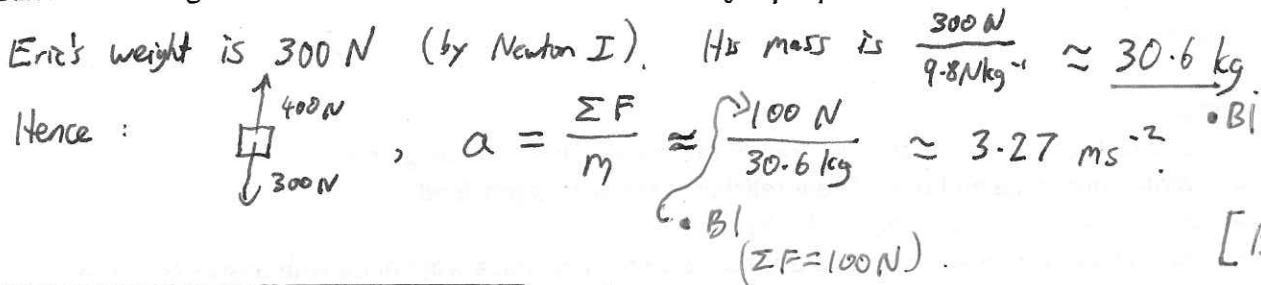 Eric's weight is 300 N (by Newton I). His mass is 300 N / 9.8 N kg⁻¹ ≈ 30.6 kg
• B1
400 N
Hence : , a = ΣF / m ≈ 100 N / 30.6 kg ≈ 3.27 ms⁻².
300 N
• B1
(ΣF = 100 N).